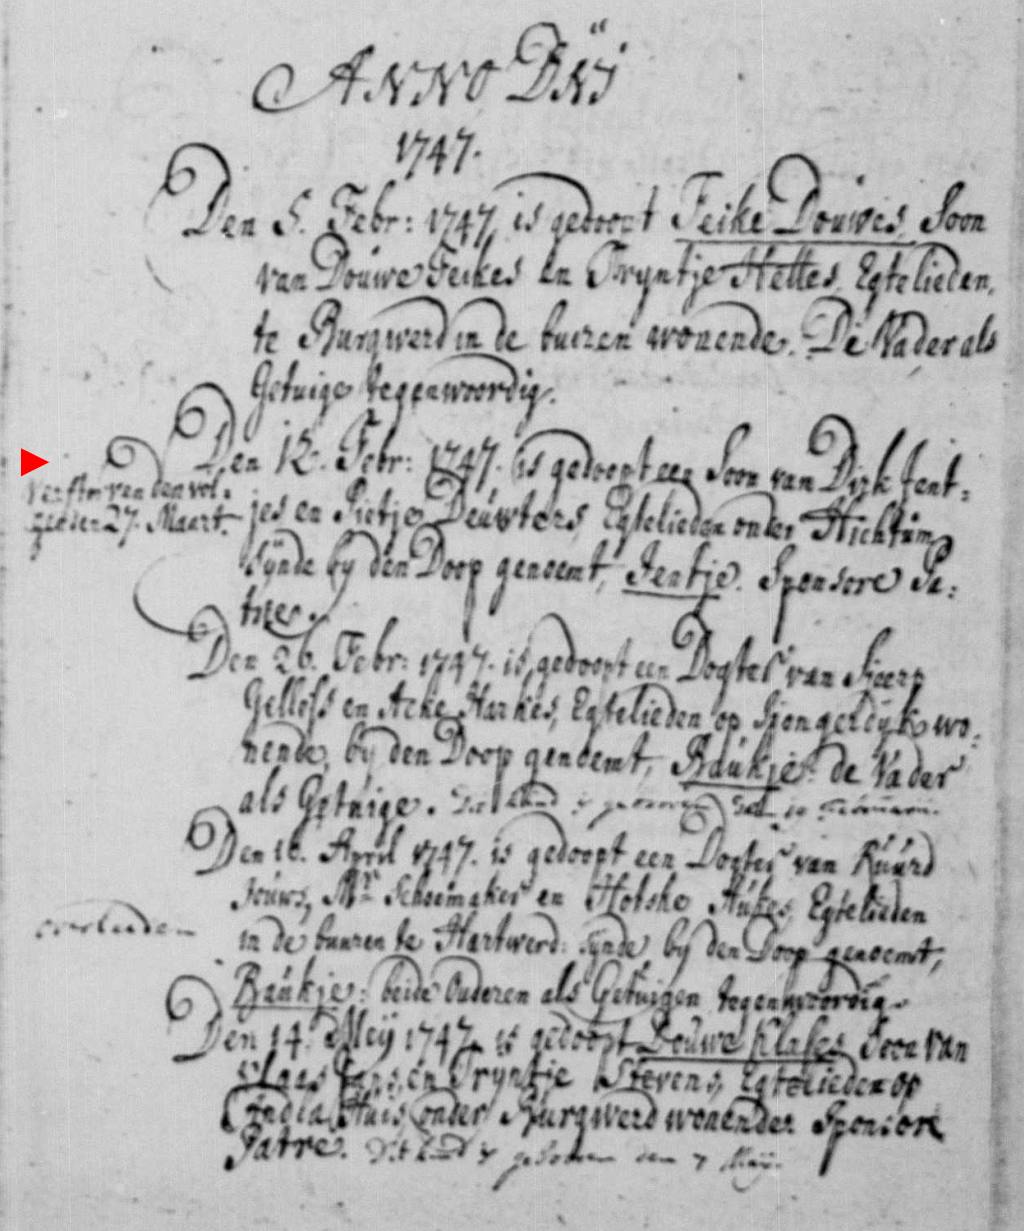 ANNO DNI
1747.
Den 5. Febr: 1747, is gedoopt Feike Douwes, Soon
van Douwe Feikes en Tryntje Hettes, Egtelieden,
te Burgwerd in de buiren wonende. De Vader als
Getuige tegenwoordig.
Den 12. Febr: 1747. is gedoopt een Soon van Dirk Jent-
verstorven den vol-
genden 27. Maart.
jes en Pietje Deuwters, Egtelieden onder Hichtum,
synde by den Doop genoemt, Jentje. Sponsore Pa-
tre.
Den 26. Febr: 1747. is gedoopt een Dogter van Sjoerp
Gellofs en Acke Harkes, Egtelieden op Sjongedyk wo-
nende, by den Doop genoemt, Baukje: de Vader
als Getuige. Dit kind is geboren den 19 Februarii.
Den 16. April 1747. is gedoopt een Dogter van Ruurd
Jouws, Mr. Schoemaker en Hotske Aukes, Egtelieden
overleeden
in de buuren te Hartwerd: synde by den Doop genoemt,
Baukje: beide Ouderen als Getuigen tegenwoordig.
Den 14. Meij 1747. is gedoopt Douwe Klases Soon van
Klaas Jans, en Tryntje Stevens, Egtelieden op
India Huis, onder Burgwerd wonende: Sponsore
Patre. Dit kind is geboren den 7 Maij.